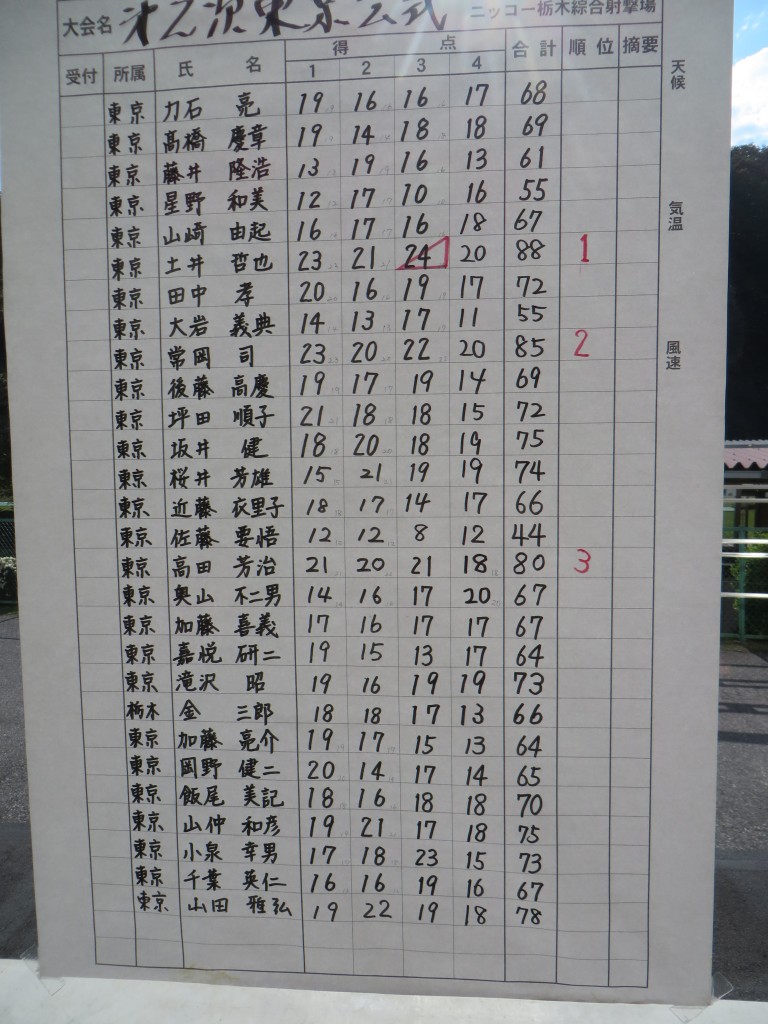 大会名 第2次東京公式 ニッコー栃木綜合射撃場
受付 所属 氏名 得点 1 2 3 4 合計 順位 摘要
天候
気温
風速
東京 力石 亮 19 16 16 17 68
東京 髙橋 慶章 19 14 18 18 69
東京 藤井 隆浩 13 19 16 13 61
東京 星野 和美 12 17 10 16 55
東京 山崎 由起 16 17 16 18 67
東京 土井 哲也 23 21 24 20 88 1
東京 田中 孝 20 16 19 17 72
東京 大岩 義典 14 13 17 11 55
東京 常岡 司 23 20 22 20 85 2
東京 後藤 高慶 19 17 19 14 69
東京 坪田 順子 21 18 18 15 72
東京 坂井 健 18 20 18 19 75
東京 桜井 芳雄 15 21 19 19 74
東京 近藤 衣里子 18 17 14 17 66
東京 佐藤 要悟 12 12 8 12 44
東京 高田 芳治 21 20 21 18 80 3
東京 奥山 不二男 14 16 17 20 67
東京 加藤 喜義 17 16 17 17 67
東京 嘉悦 研二 19 15 13 17 64
東京 滝沢 昭 19 16 19 19 73
栃木 金 三郎 18 18 17 13 66
東京 加藤 亮介 19 17 15 13 64
東京 岡野 健二 20 14 17 14 65
東京 飯尾 美記 18 16 18 18 70
東京 山仲 和彦 19 21 17 18 75
東京 小泉 幸男 17 18 23 15 73
東京 千葉 英仁 16 16 19 16 67
東京 山田 雅弘 19 22 19 18 78